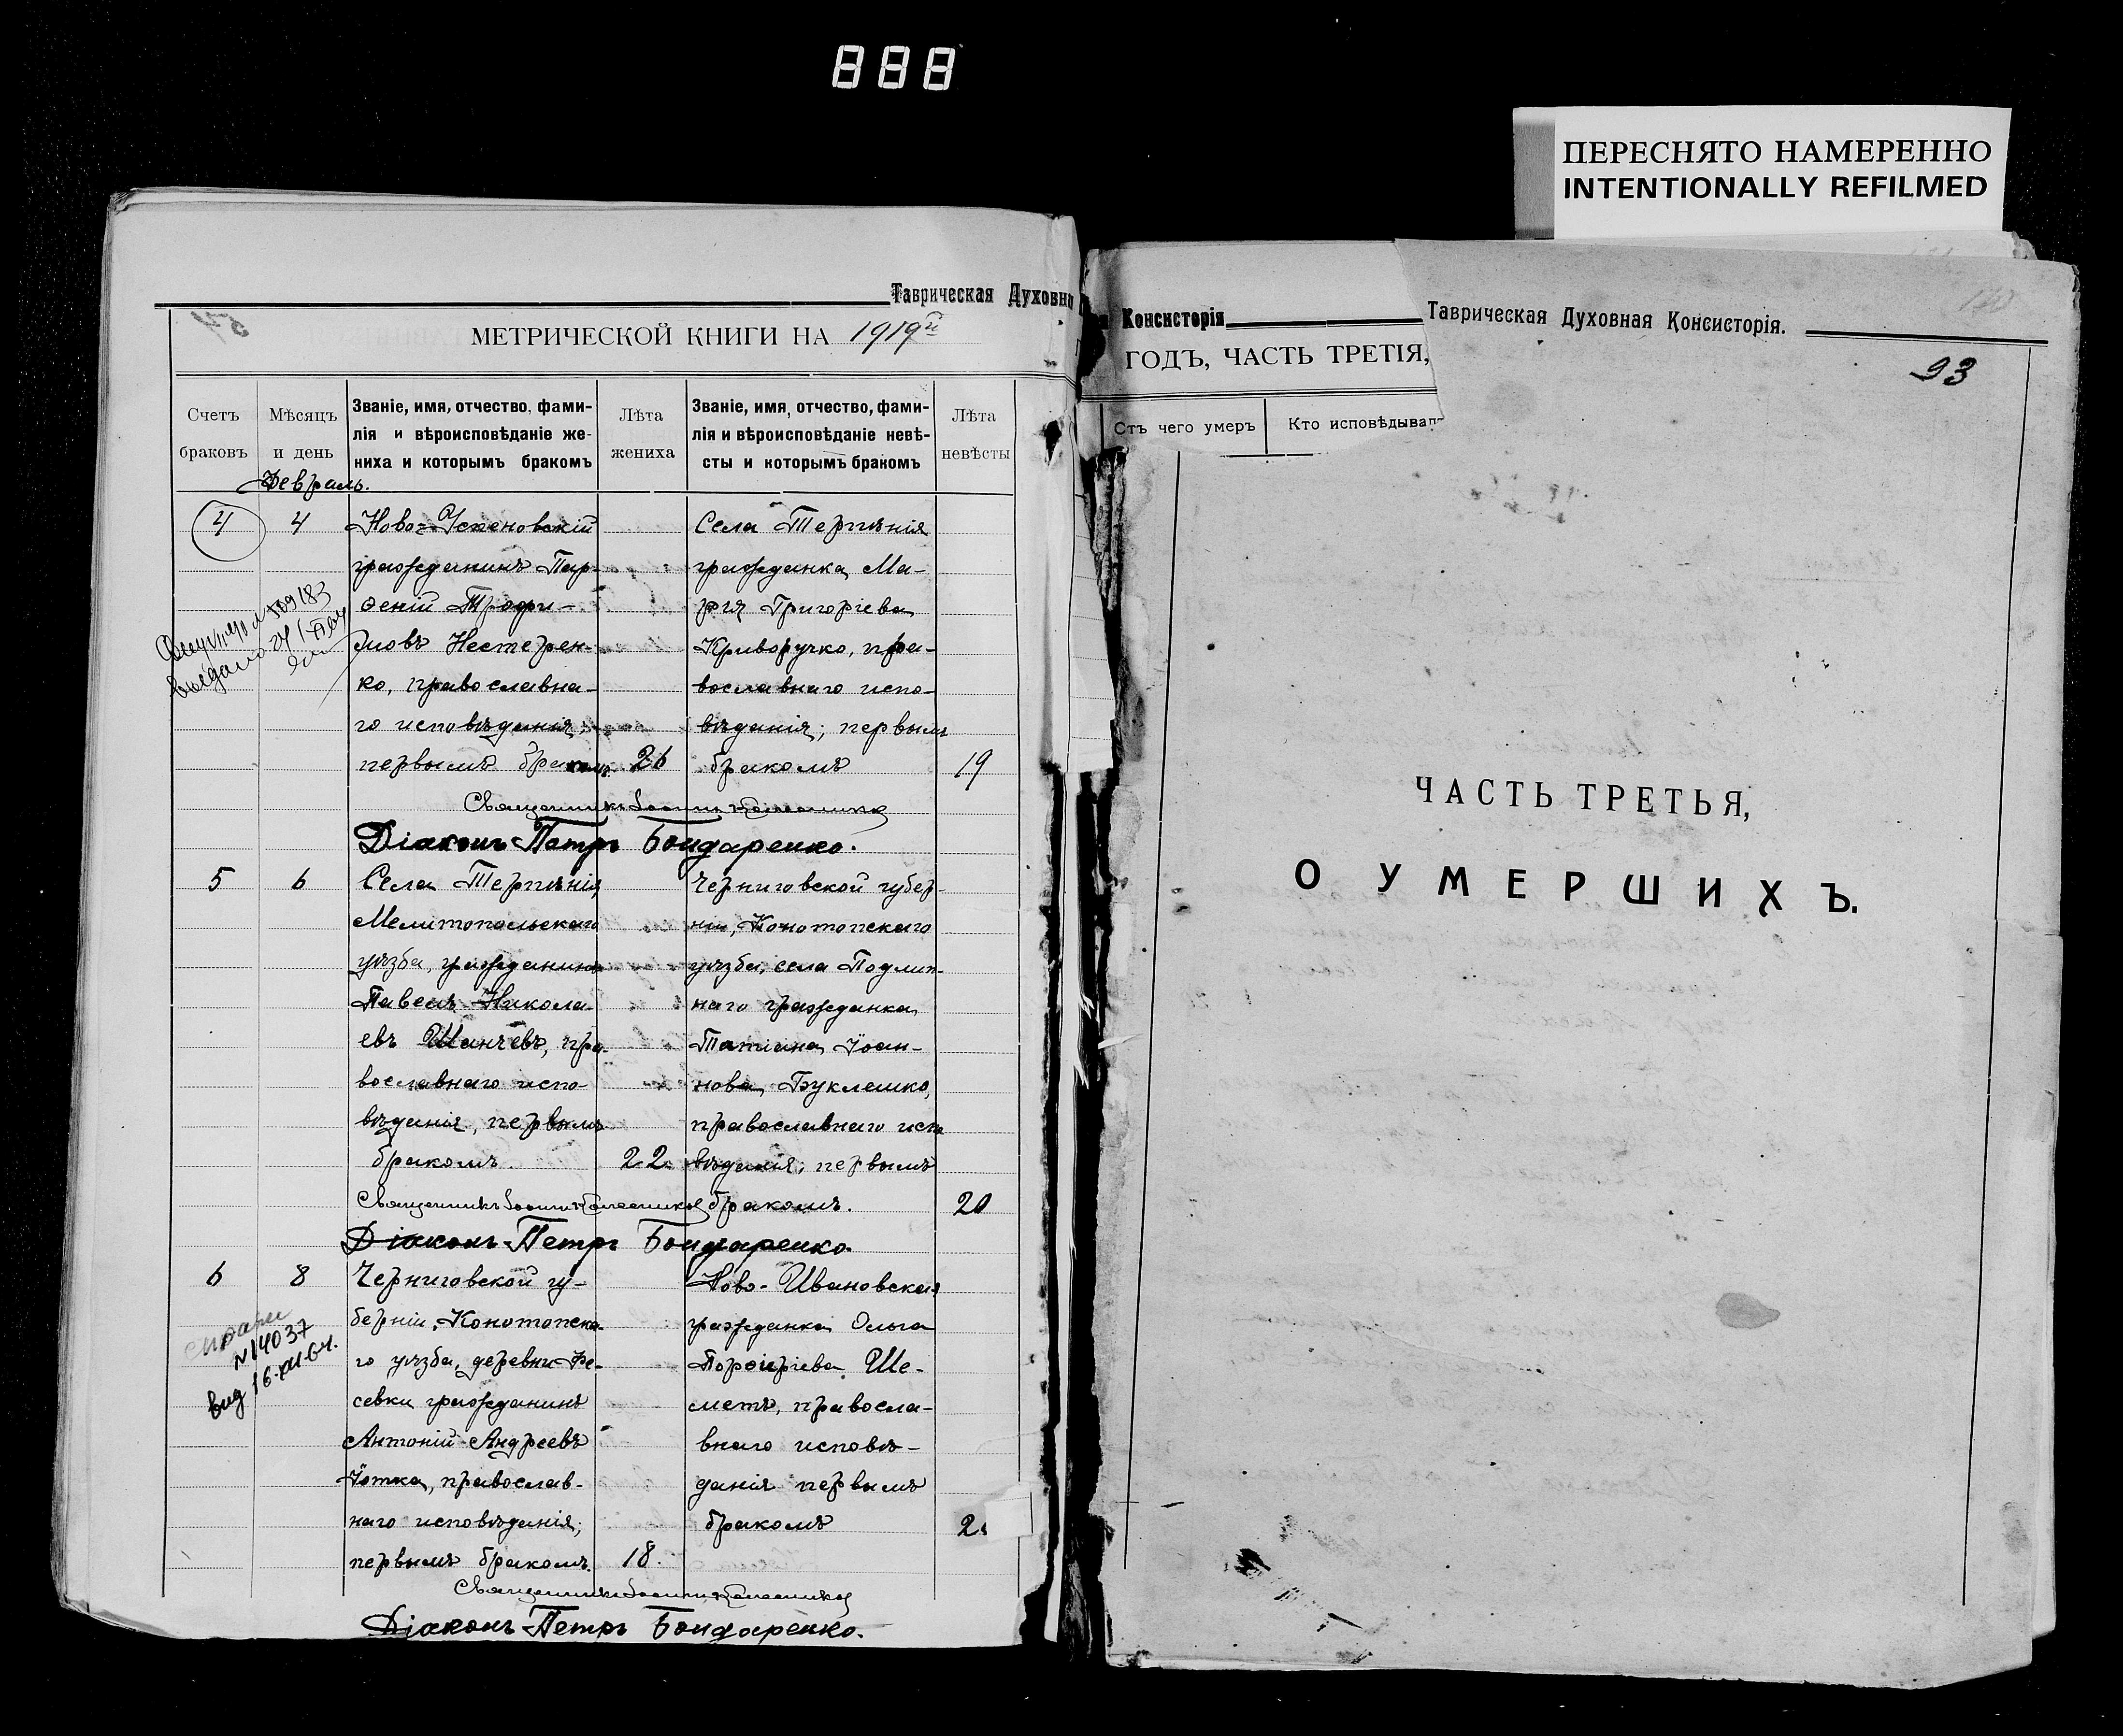 888
ПЕРЕСНЯТО НАМЕРЕННО
INTENTIONALLY REFILMED
Таврическая Духовна
МЕТРИЧЕСКОЙ КНИГИ НА 1919й
Счетъ браковъ
Мѣсяцъ и день
Званіе, имя, отчество, фами-
лія и вѣроисповѣданіе же-
ниха и которымъ бракомъ
Лѣта жениха
Званіе, имя, отчество, фами-
лія и вѣроисповѣданіе невѣ-
сты и которымъ бракомъ
Лѣта невѣсты
Февраль.
4
4
Ново-Успеновскій
гражданинъ Пар-
ѳеній Трофи-
мовъ Нестерен-
ко, православна-
го исповѣданія,
первымъ бракомъ
26
Села Терпѣнія
гражданка Ма-
рія Григоріева
Криворучко, пра-
вославнаго испо-
вѣданія, первымъ
бракомъ
19
выдано
Священникъ Іоаннъ
Діаконъ Петръ Бондаренко.
5
6
Села Терпѣнія
Мелитопольскаго
уѣзда, гражданинъ
Павелъ Никола-
евъ Шанчевъ, пра-
вославнаго испо-
вѣданія, первымъ
бракомъ.
22
Черниговской губер-
ніи, Конотопскаго
уѣзда, села Подлип-
наго гражданка
Татіана Іоан-
нова Буклешко,
православнаго испо
вѣданія, первымъ
бракомъ.
20
Священникъ Іоаннъ
Діаконъ Петръ Бондаренко.
6
8
Черниговской гу-
берніи, Конотопска-
го уѣзда, деревни Фе-
севки гражданинъ
Антоній Андреевъ
Іотка, православ-
наго исповѣданія,
первымъ бракомъ.
18.
Ново-Ивановская
гражданка Ольга
Порфиріева Ше-
метъ, правосла-
внаго исповѣ-
данія первымъ
бракомъ
N14037
выд 16-XII-64.
Священникъ Іоаннъ
Діаконъ Петръ Бондаренко.
Консисторія
ГОДЪ, ЧАСТЬ ТРЕТІЯ,
Отъ чего умеръ
Кто исповѣдывал
Таврическая Духовная Консисторія.
93
ЧАСТЬ ТРЕТЬЯ,
О УМЕРШИХЪ.